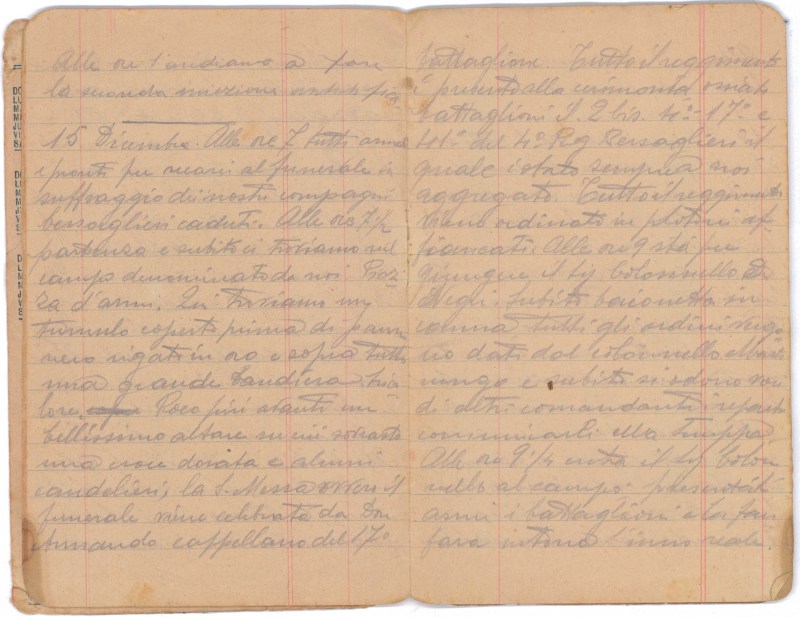 Alle ore 1 andiamo a fare
la seconda iniezione antitifica
15 Dicembre. Alle ore 7 tutti armati
e pronti per recarci al funerale in
suffraggio dei nostri compagni
bersaglieri caduti. Alle ore 7½
partenza e subito ci troviamo nel
campo denominato da noi Piaz-
za d'armi. Qui troviamo un
tumulo coperto prima di panno
nero rigati in oro e sopra tutto
una grande bandiera trico
lore. Poco più avanti un
bellissimo altare su cui sovrasta
una croce dorata e alcuni
candelieri; la S. Messa ovvero il
funerale viene celebrata da Don
Armando cappellano del 17°
battaglione. Tutto il reggimento
è presente alla cerimonia ossia i
battaglioni il 2 bis.
41° del 4° Reg Bersaglieri il
quale è stato sempre a noi
aggregato. Tutto il reggimento
viene ordinato in plotoni af-
fiancati. Alle ore 9 sta per
giungere il Sig Colonnello
Negri. Subito baionetta in
canna tutti gli ordini vengo
no dati dal colonnello
e subito si odono voci
di altri comandanti i reparti
comunicarli alla truppa
Alle ore 9¼ entra il Sig Colon
nello al campo: presentat
armi i battaglioni e la fan
fara intona l'inno reale.